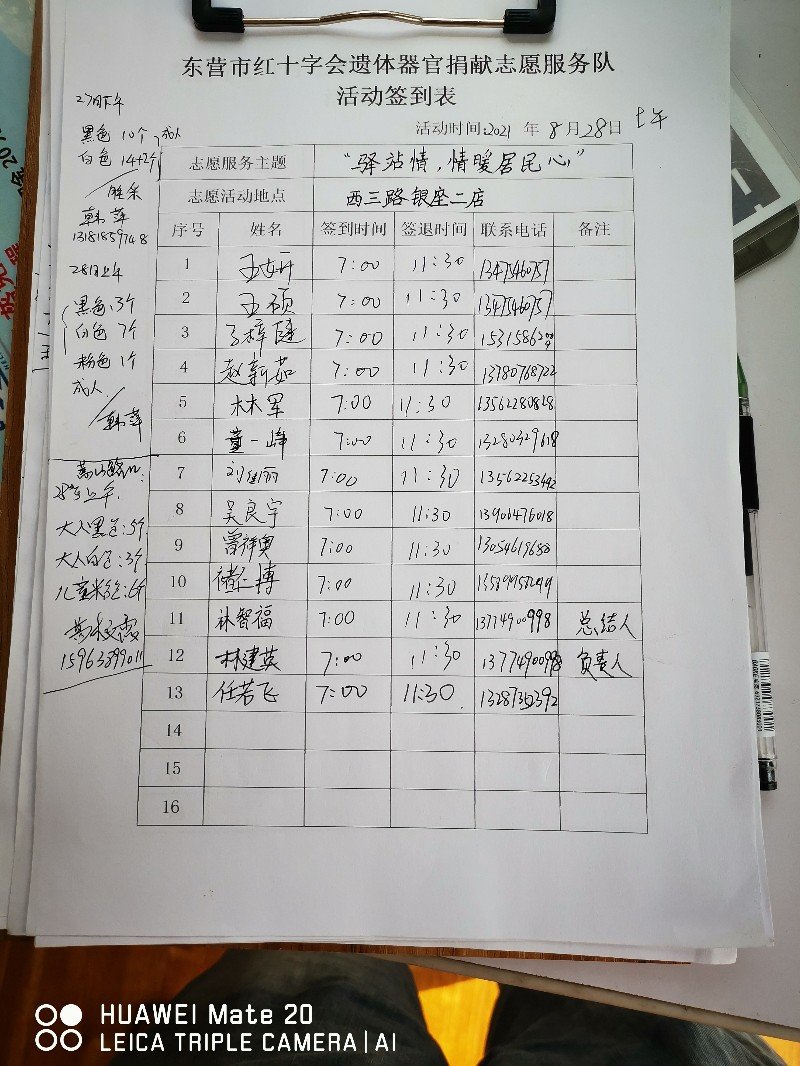 东营市红十字会遗体器官捐献志愿服务队
活动签到表
活动时间:2021 年 8月28日 上午
志愿服务主题 “驿站情,情暖居民心”
志愿活动地点 西三路银座二店
序号 姓名 签到时间 签退时间 联系电话 备注
1 王妍 7:00 11:30
2 王硕 7:00 11:30
3 7:00 11:30
4 赵新茹 7:00 11:30 13780768722
5 林军 7:00 11:30 13562280828
6 董一峰 7:00 11:30 13280329618
7 刘佳丽 7:00 11:30 13562253492
8 吴良宇 7:00 11:30 13906476018
9 7:00 11:30 13054619680
10 7:00 11:30
11 林智福 7:00 11:30 13774900998 总结人
12 林建英 7:00 11:30 13774900998 负责人
13 任若飞 7:00 11:30
14
15
16
27日下午
黑色 10个 成人
白色 14+2个
韩萍
13181859748
28日上午
黑色:3个
白色 7个
粉色 1个
成人
韩萍
28号上午.
大人黑色:5个
大人白色:3个
15963899011
HUAWEI Mate 20
LEICA TRIPLE CAMERA | AI